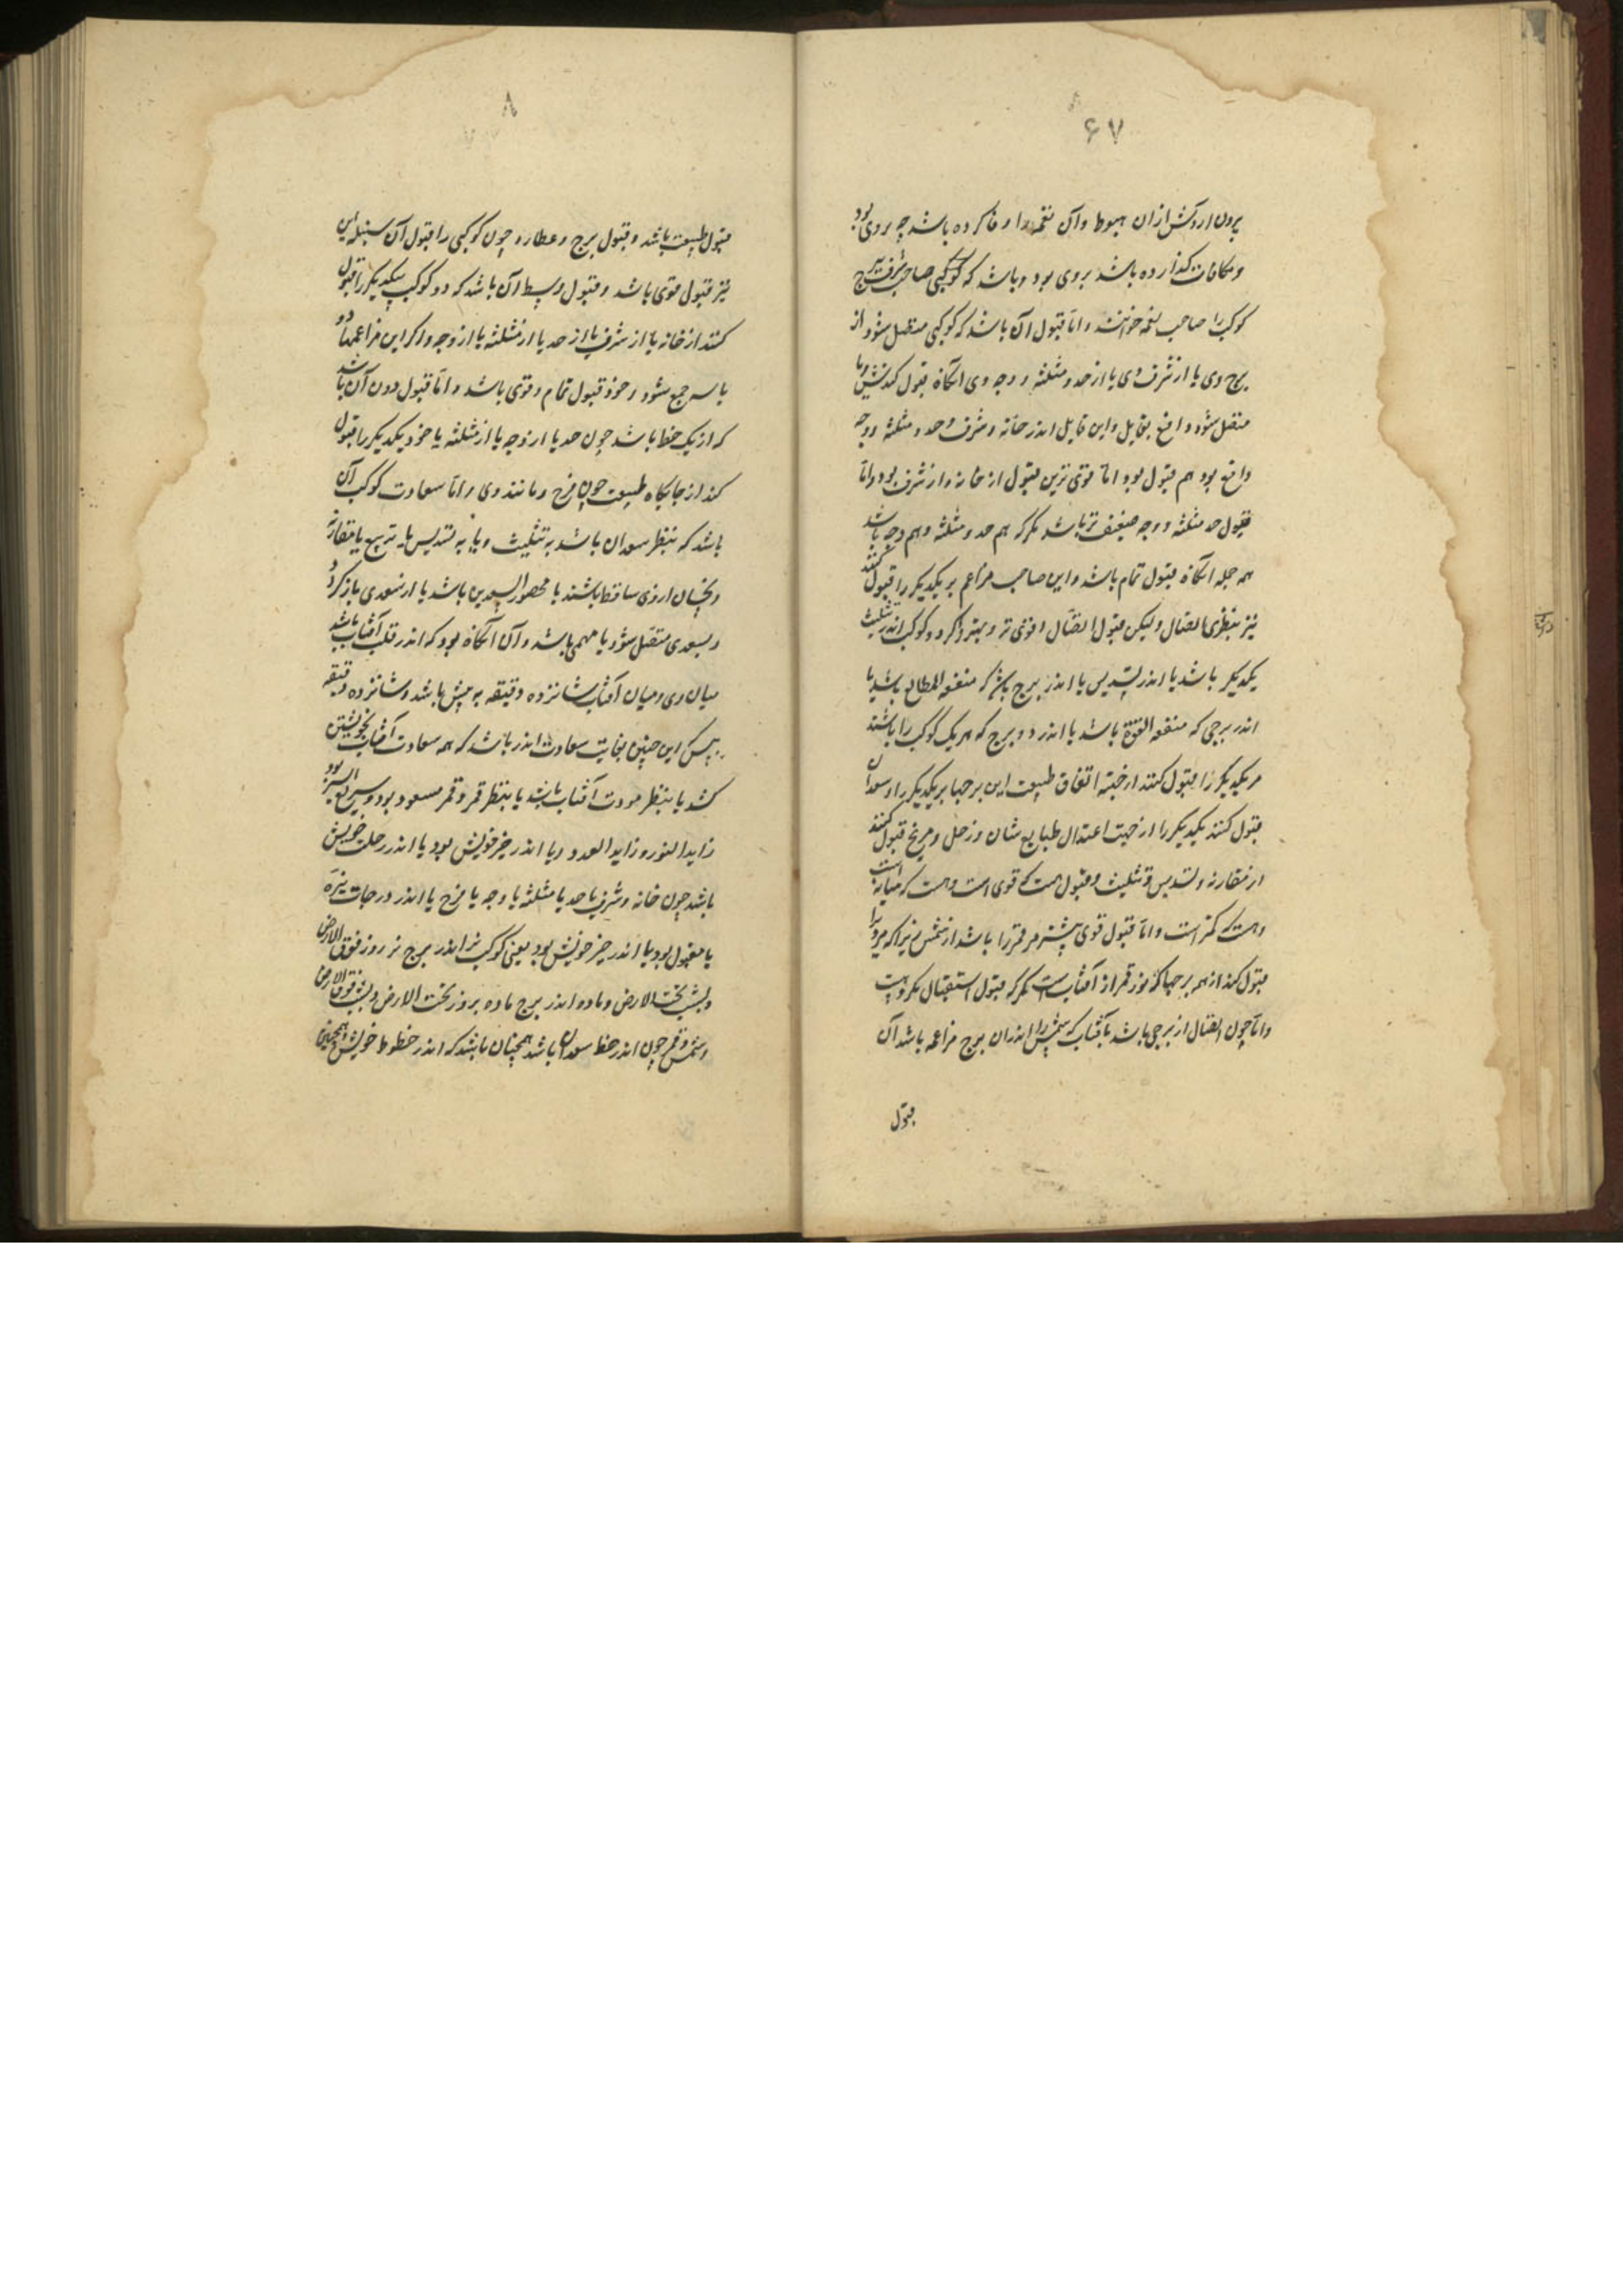 ۶۷
بیرون آردش از ان هبوط و آن نعمت را وفا کرده باشد چه بروی بود
و مکافات گذارده باشد بروی بود و باشد که کوکبی صاحب شرف برج
کوکب را صاحب نعمه خوانند و اما قبول آن باشد که کوکبی متصل شود از
برج وی یا از شرف وی یا از حد و مثلثه و وجه وی آنگاه قبول کندش و یا
متصل شود دافع بقابل و این قابل اندر خانه و شرف و حد و مثلثه و وجه
دافع بود هم قبول بود اما قوی ترین قبول از خانه و از شرف بود و اما
قبول حد مثلثه و وجه ضعیف تر باشد مگر که هم حد و مثلثه و هم وجه باشد
همه جمله آنگاه قبول تمام باشد و این صاحب مزاعم بر یکدیگر را قبول کنند
نیز بنظر بی اتصال ولیکن قبول اتصال قوی تر و بهتر و گر دو کوکب اندر تثلیث
یکدیگر باشد یا اندر تسدیس یا اندر برج باشد که متفقه المطالع باشد یا
اندر برجی که متفقه القوة باشد یا اندر دو برج که هر یک کوکب را باشند
مر یکدیگر را قبول کنند از جهة اتفاق طبیعت این برجها بر یکدیگر را و سعدان
قبول کنند یکدیگر را از جهت اعتدال طبایع شان و زحل و مریخ قبول کنند
از مقارنه و تسدیس و تثلیث و قبول هست که قوی است و هست که میانه است
و هست که کمتر است و اما قبول قوی بیشتر مر قمر را باشد از شمس زیرا که مرو را
قبول کند از همه برجها که نور قمر از آفتاب است مگر که قبول استقبال مکروهست
و اما چون اتصال از برجی باشد بآفتاب که شمس را اندران برج مزاعمه باشد آن
قبول
۸
قبول طبیعت باشد و قبول برج و عطارد چون کوکبی را قبول آن سنبله این
نیز قبول قوی باشد و قبول وسط آن باشد که دو کوکب یکدیگر را قبول
کنند از خانه یا از شرف یا از حد یا از مثلثه یا از وجه و اگر این مزاعمتها دو
یا سه جمع شود و خود قبول تمام و قوی باشد و اما قبول دون آن باشد
که از یک حظ باشد چون حد یا از وجه یا از مثلثه یا خود یکدیگر را قبول
کند از جایگاه طبیعت چون فرح و مانند وی و اما سعادت کوکب آن
باشد که بنظر سعدان باشد به تثلیث و یا به تسدیس یا به تربیع یا مقارنه
و نحسان از وی ساقط باشند یا محصور السعدین باشد یا از سعدی باز گردد
و بسعدی متصل شود یا صمیمی باشد و آن آنگاه بود که اندر قلب آفتاب باشد
میان وی و میان آفتاب شانزده دقیقه به پیش باشد و شانزده دقیقه
پس این چنین بغایت سعادت اندر باشد که همه سعادت آفتاب بخویشتن
کشد یا بنظر مودت آفتاب باشد یا بنظر قمر و قمر مسعود بود و سریع السیر بود
زاید النور و زاید العدد و یا اندر حیز خویش بود یا اندر حلب خویش
باشد چون خانه و شرف یا حد یا مثلثه یا وجه یا فرح یا اندر درجات نیره
یا مقبول بود یا اندر حیز خویش بود یعنی کوکب نر اندر برج نر روز فوق الارض
و بشب تحت الارض و ماده اندر برج ماده بروز تحت الارض و بشب فوق الارض
و شمس و قمر چون اندر حظ سعدان باشد همچنان باشد که اندر حظوظ خویش و همچنین